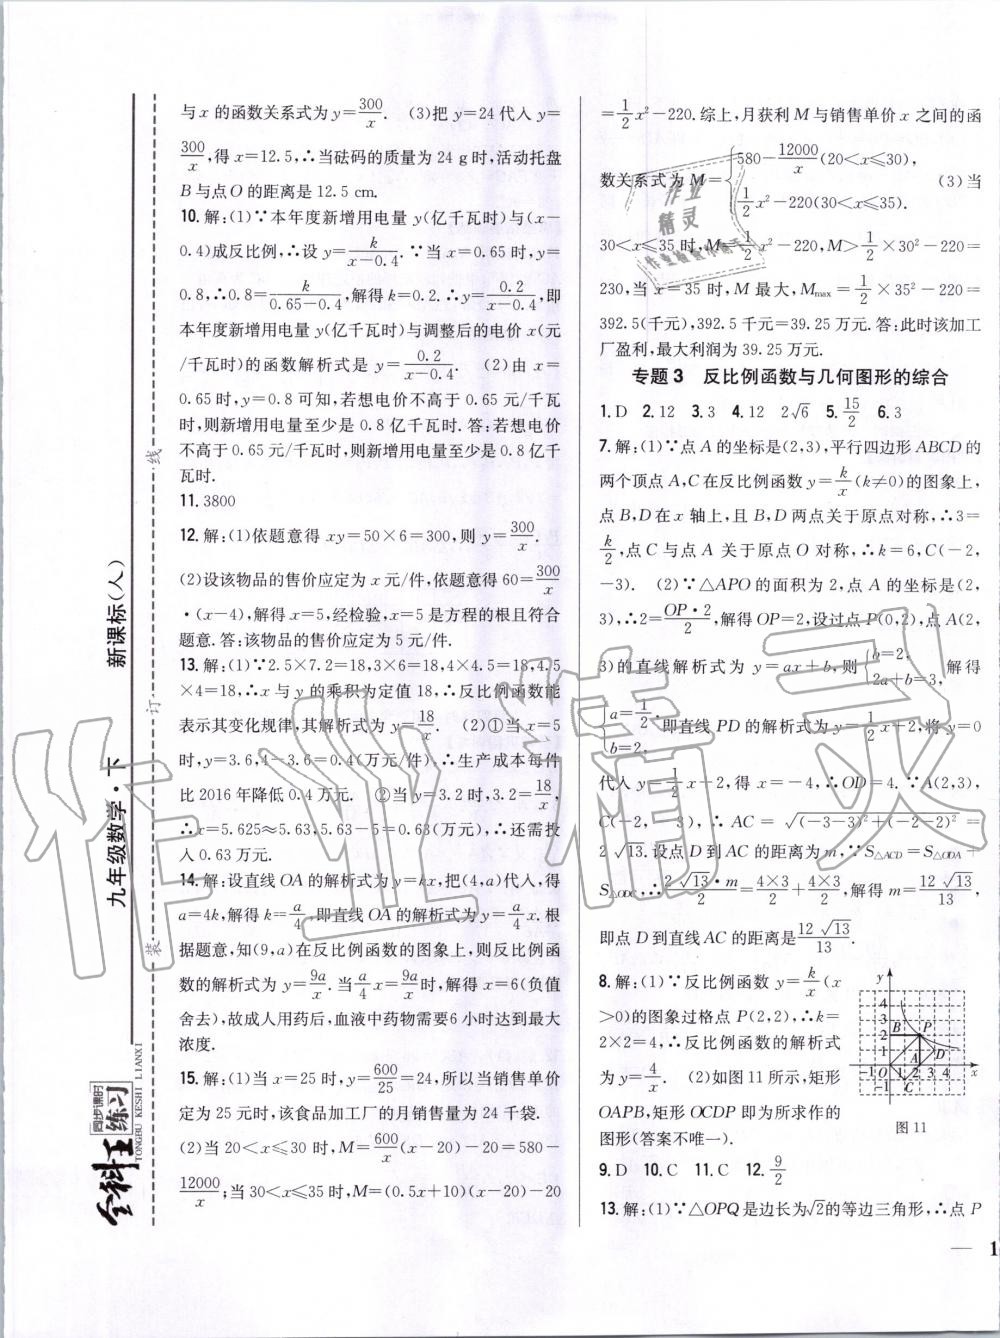 与x的函数关系式为y=300/x. (3)把 y=24代入y=
300/x,得x=12.5,∴当砝码的质量为24 g时,活动托盘
B与点O的距离是12.5 cm.
10.解:(1)∵本年度新增用电量y(亿千瓦时)与(x-
0.4)成反比例,∴设y=k/(x-0.4).∵当x=0.65时,y=
0.8,∴0.8=k/(0.65-0.4),解得k=0.2.∴y=0.2/(x-0.4),即
本年度新增用电量y(亿千瓦时)与调整后的电价x(元
/千瓦时)的函数解析式是 y=0.2/(x-0.4). (2)由 x=
0.65时,y=0.8可知,若想电价不高于0.65元/千瓦
时,则新增用电量至少是0.8亿千瓦时.答:若想电价
不高于0.65元/千瓦时,则新增用电量至少是0.8亿千
瓦时.
11.3800
12.解:(1)依题意得 xy=50×6=300,则 y=300/x.
(2)设该物品的售价应定为x元/件,依题意得60=300/x
·(x-4),解得x=5,经检验,x=5是方程的根且符合
题意.答:该物品的售价应定为5元/件.
13.解:(1)∵2.5×7.2=18,3×6=18,4×4.5=18,4.5
×4=18,∴x与y的乘积为定值18,∴反比例函数能
表示其变化规律,其解析式为y=18/x. (2)①当x=5
时,y=3.6,4-3.6=0.4(万元/件),∴生产成本每件
比2016年降低0.4万元. ②当y=3.2时,3.2=18/x,
∴x=5.625≈5.63,5.63-5=0.63(万元),∴还需投
入0.63万元.
14.解:设直线OA的解析式为y=kx,把(4,a)代入,得
a=4k,解得k=a/4,即直线OA的解析式为y=a/4 x.根
据题意,知(9,a)在反比例函数的图象上,则反比例函
数的解析式为y=9a/x.当a/4 x=9a/x时,解得x=6(负值
舍去),故成人用药后,血液中药物需要6小时达到最大
浓度.
15.解:(1)当x=25时,y=600/25=24,所以当销售单价
定为25元时,该食品加工厂的月销售量为24千袋.
(2)当20<x≤30时,M=600/x(x-20)-20=580-
12000/x;当30<x≤35时,M=(0.5x+10)(x-20)-20
=1/2 x²-220.综上,月获利M与销售单价x之间的函
数关系式为M={580-12000/x(20<x≤30),
1/2 x²-220(30<x≤35). (3)当
30<x≤35时,M=1/2 x²-220,M>1/2×30²-220=
230,当x=35时,M最大,Mmax=1/2×35²-220=
392.5(千元),392.5千元=39.25万元.答:此时该加工
厂盈利,最大利润为39.25万元.
专题3 反比例函数与几何图形的综合
1.D 2.12 3.3 4.12 2√6 5.15/2 6.3
7.解:(1)∵点A的坐标是(2,3),平行四边形ABCD的
两个顶点A,C在反比例函数y=k/x(k≠0)的图象上,
点B,D在x轴上,且B,D两点关于原点对称,∴3=
k/2,点C与点A关于原点O对称,∴k=6,C(-2,
-3). (2)∵△APO的面积为2,点A的坐标是(2,
3),∴2=OP·2/2,解得OP=2,设过点P(0,2),点A(2,
3)的直线解析式为y=ax+b,则{b=2, 2a+b=3,解得
{a=1/2, b=2,即直线PD的解析式为y=1/2 x+2,将y=0
代入y=1/2 x+2,得x=-4,∴OD=4.∵A(2,3),
C(-2,-3),∴AC=√((-3-3)²+(-2-2)²)=
2√13.设点D到AC的距离为m,∵S△ACD=S△ODA+
S△ODC,∴2√13·m/2=4×3/2+4×3/2,解得m=12√13/13,
即点D到直线AC的距离是12√13/13.
8.解:(1)∵反比例函数y=k/x(x
>0)的图象过格点P(2,2),∴k=
2×2=4,∴反比例函数的解析式
为y=4/x. (2)如图11所示,矩形
OAPB,矩形OCDP即为所求作的
图形(答案不唯一).
y
4
3
2
1
-1
B
P
A
D
C
-1 1 2 3 4 x
图11
9.D 10.C 11.C 12.9/2
13.解:(1)∵△OPQ是边长为√2的等边三角形,∴点P
新课标(人)
九年级数学·下
线
订
装
全科王
同步课时
练习
TONGBU KESHI LIANXI
作业精灵
作业精灵
— 1